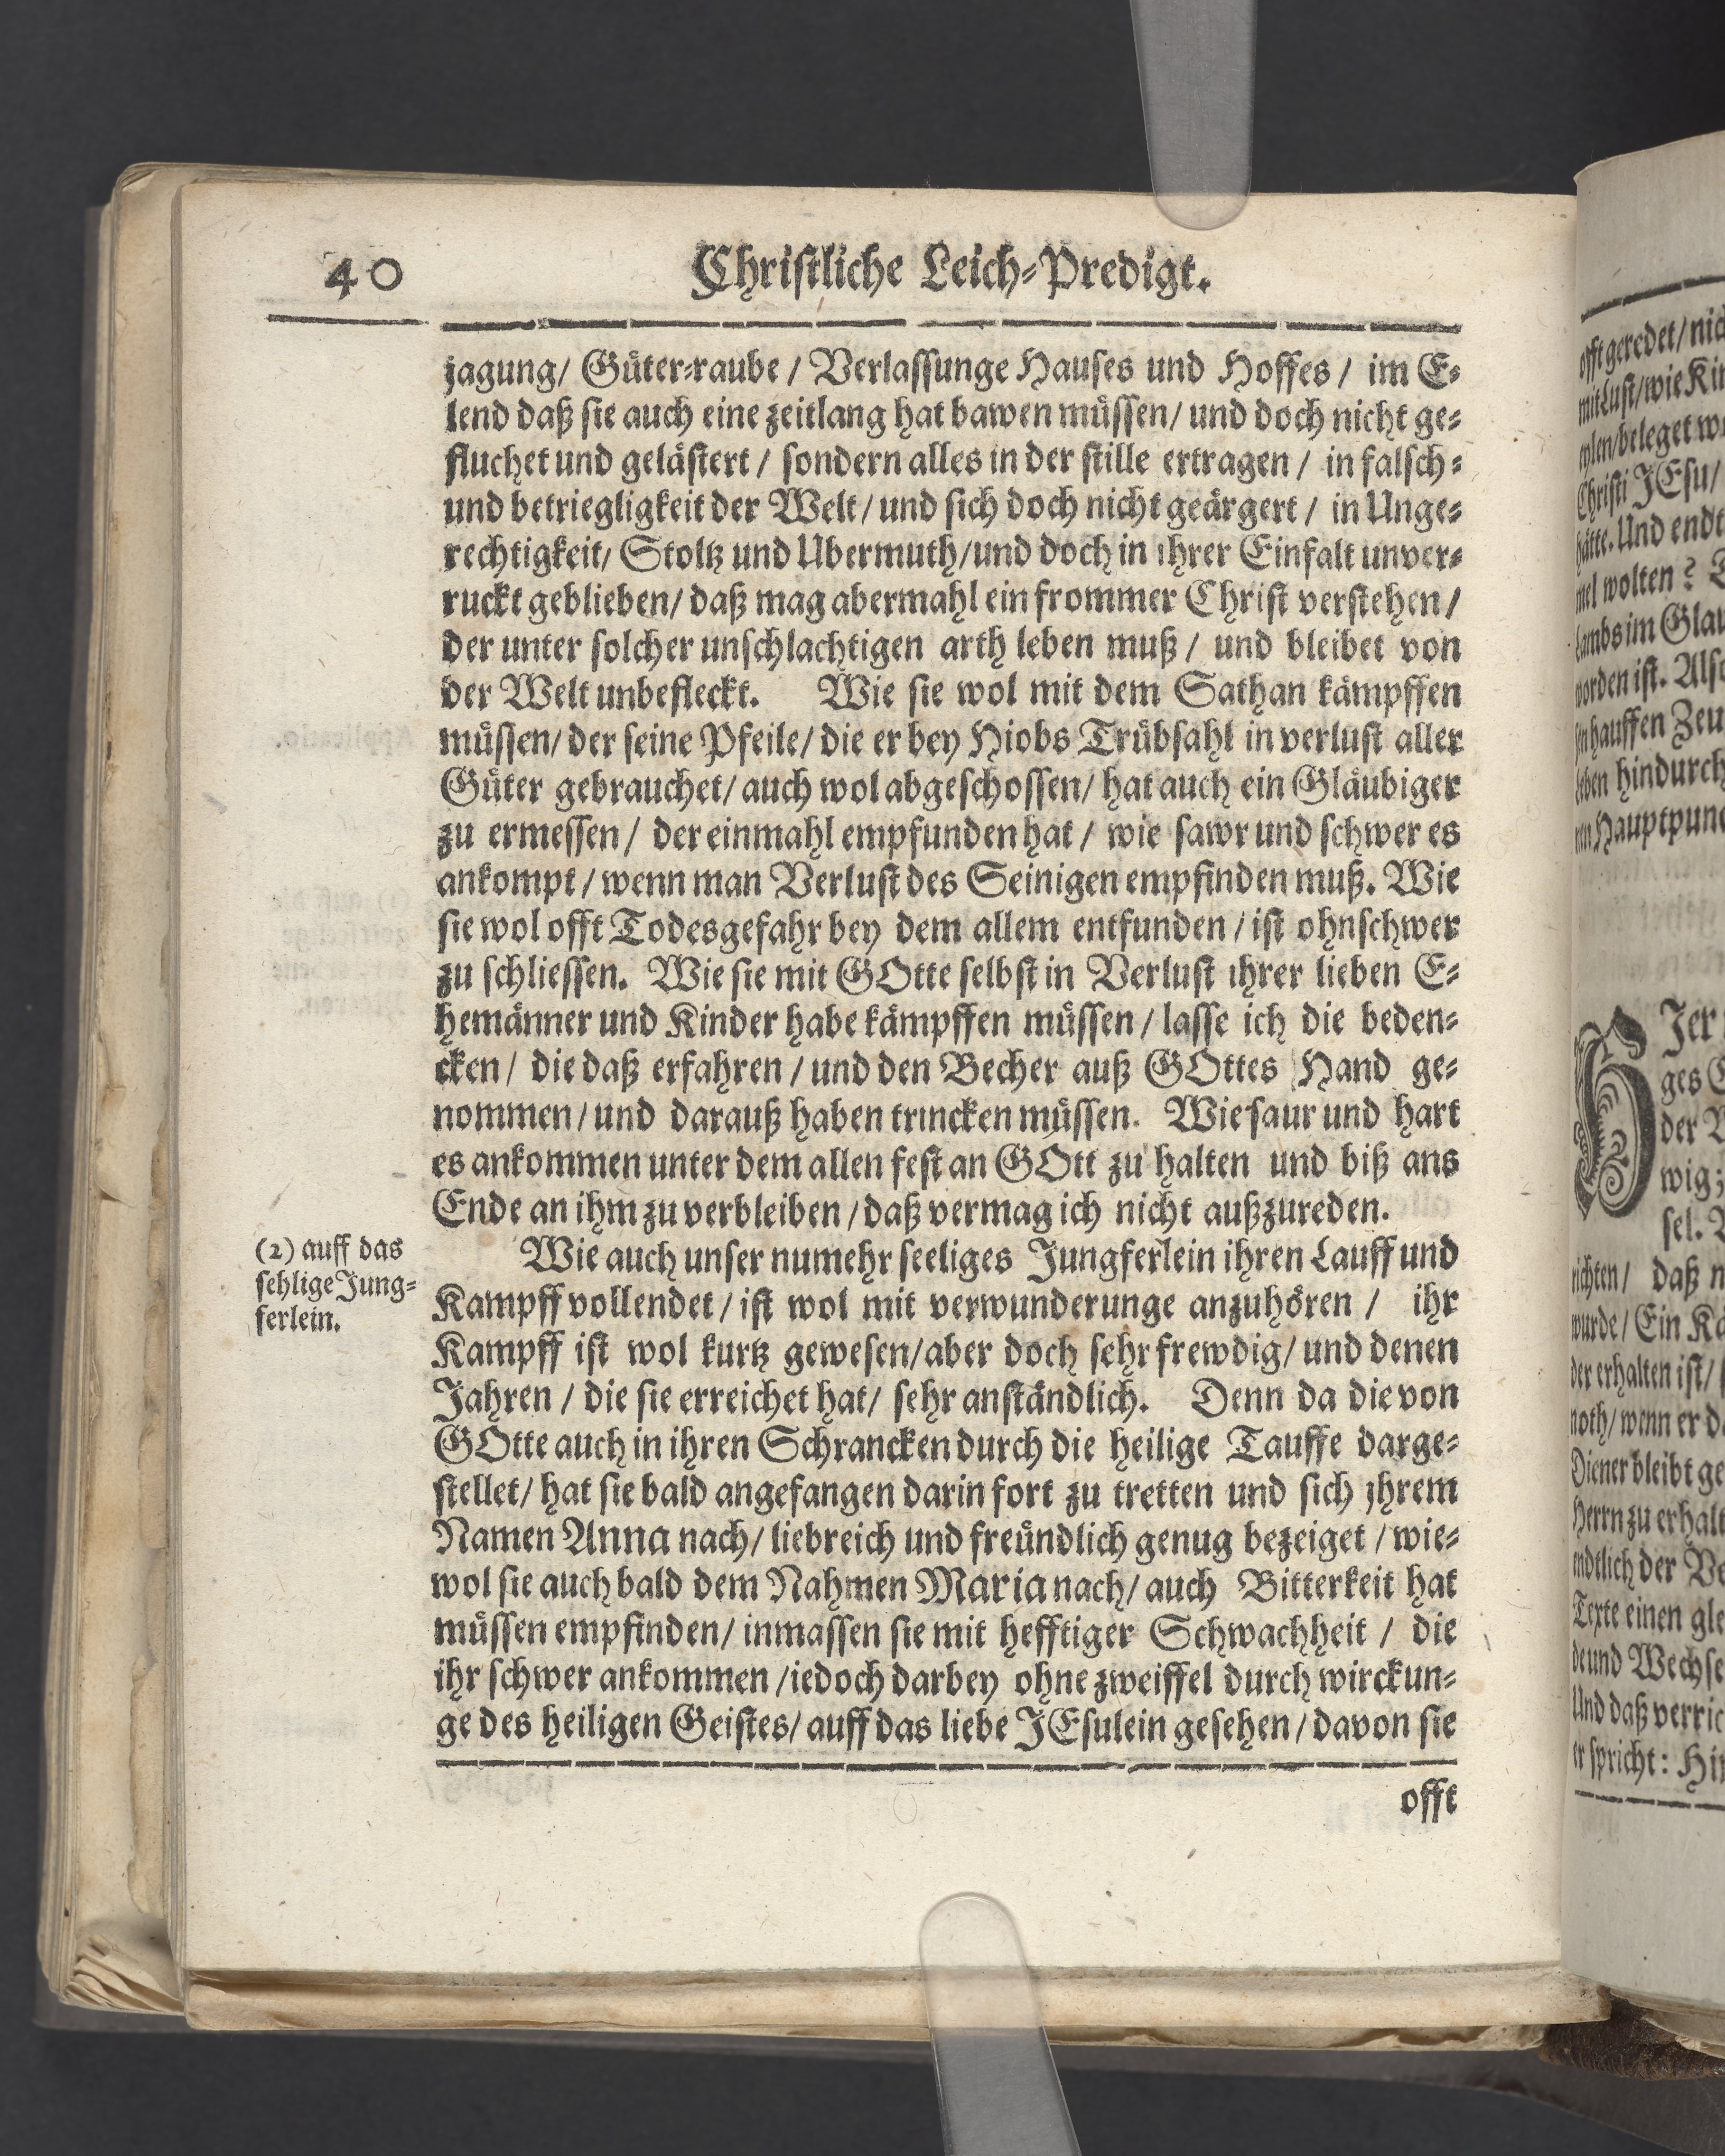 40
Christliche Leich-Predigt.
jagung/ Güter-raube / Verlassunge Hauses und Hoffes / im E-
lend daß sie auch eine zeitlang hat bawen müssen/ und doch nicht ge-
fluchet und gelästert / sondern alles in der stille ertragen / in falsch-
und betriegligkeit der Welt / und sich doch nicht geärgert / in Unge-
rechtigkeit/ Stoltz und Ubermuth/und doch in ihrer Einfalt unver-
ruckt geblieben/ daß mag abermahl ein frommer Christ verstehen /
der unter solcher unschlachtigen arth leben muß / und bleibet von
der Welt unbefleckt. Wie sie wol mit dem Sathan kämpffen
müssen/ der seine Pfeile/ die er bey Hiobs Trübsahl in verlust aller
Güter gebrauchet/ auch wol abgeschossen/ hat auch ein Gläubiger
zu ermessen / der einmahl empfunden hat / wie sawr und schwer es
ankompt / wenn man Verlust des Seinigen empfinden muß. Wie
sie wol offt Todesgefahr bey dem allem entfunden / ist ohnschwer
zu schliessen. Wie sie mit GOtte selbst in Verlust ihrer lieben E-
hemänner und Kinder habe kämpffen müssen / lasse ich die beden-
cken / die daß erfahren / und den Becher auß GOttes Hand ge-
nommen / und darauß haben trincken müssen. Wie saur und hart
es ankommen unter dem allen fest an GOtt zu halten und biß ans
Ende an ihm zu verbleiben / daß vermag ich nicht außzureden.
(2) auff das
sehlige Jung-
ferlein.
Wie auch unser numehr seeliges Jungferlein ihren Lauff und
Kampff vollendet / ist wol mit verwunderunge anzuhören / ihr
Kampff ist wol kurtz gewesen/aber doch sehr frewdig/ und denen
Jahren / die sie erreichet hat/ sehr anständlich. Denn da die von
GOtte auch in ihren Schrancken durch die heilige Tauffe darge-
stellet/ hat sie bald angefangen darin fort zu tretten und sich jhrem
Namen Anna nach/ liebreich und freündlich genug bezeiget / wie-
wol sie auch bald dem Nahmen Maria nach/ auch Bitterkeit hat
müssen empfinden/ inmassen sie mit hefftiger Schwachheit / die
ihr schwer ankommen /iedoch darbey ohne zweiffel durch wirckun-
ge des heiligen Geistes/ auff das liebe JEsulein gesehen / davon sie
offt
offt geredet/
mit Lust/wie
beleget
Christi JEsu/
hätte. Und
wolten?
im
worden ist.
hauffen
hindurch
Hauptpunc
HJer
ges
der
wig;
sel.
richten/ daß
wurde / Ein
der erhalten ist/
noth/ wenn er
Diener bleibt
Herrn zu
endtlich der
Texte einen
de und
Und daß
er spricht: